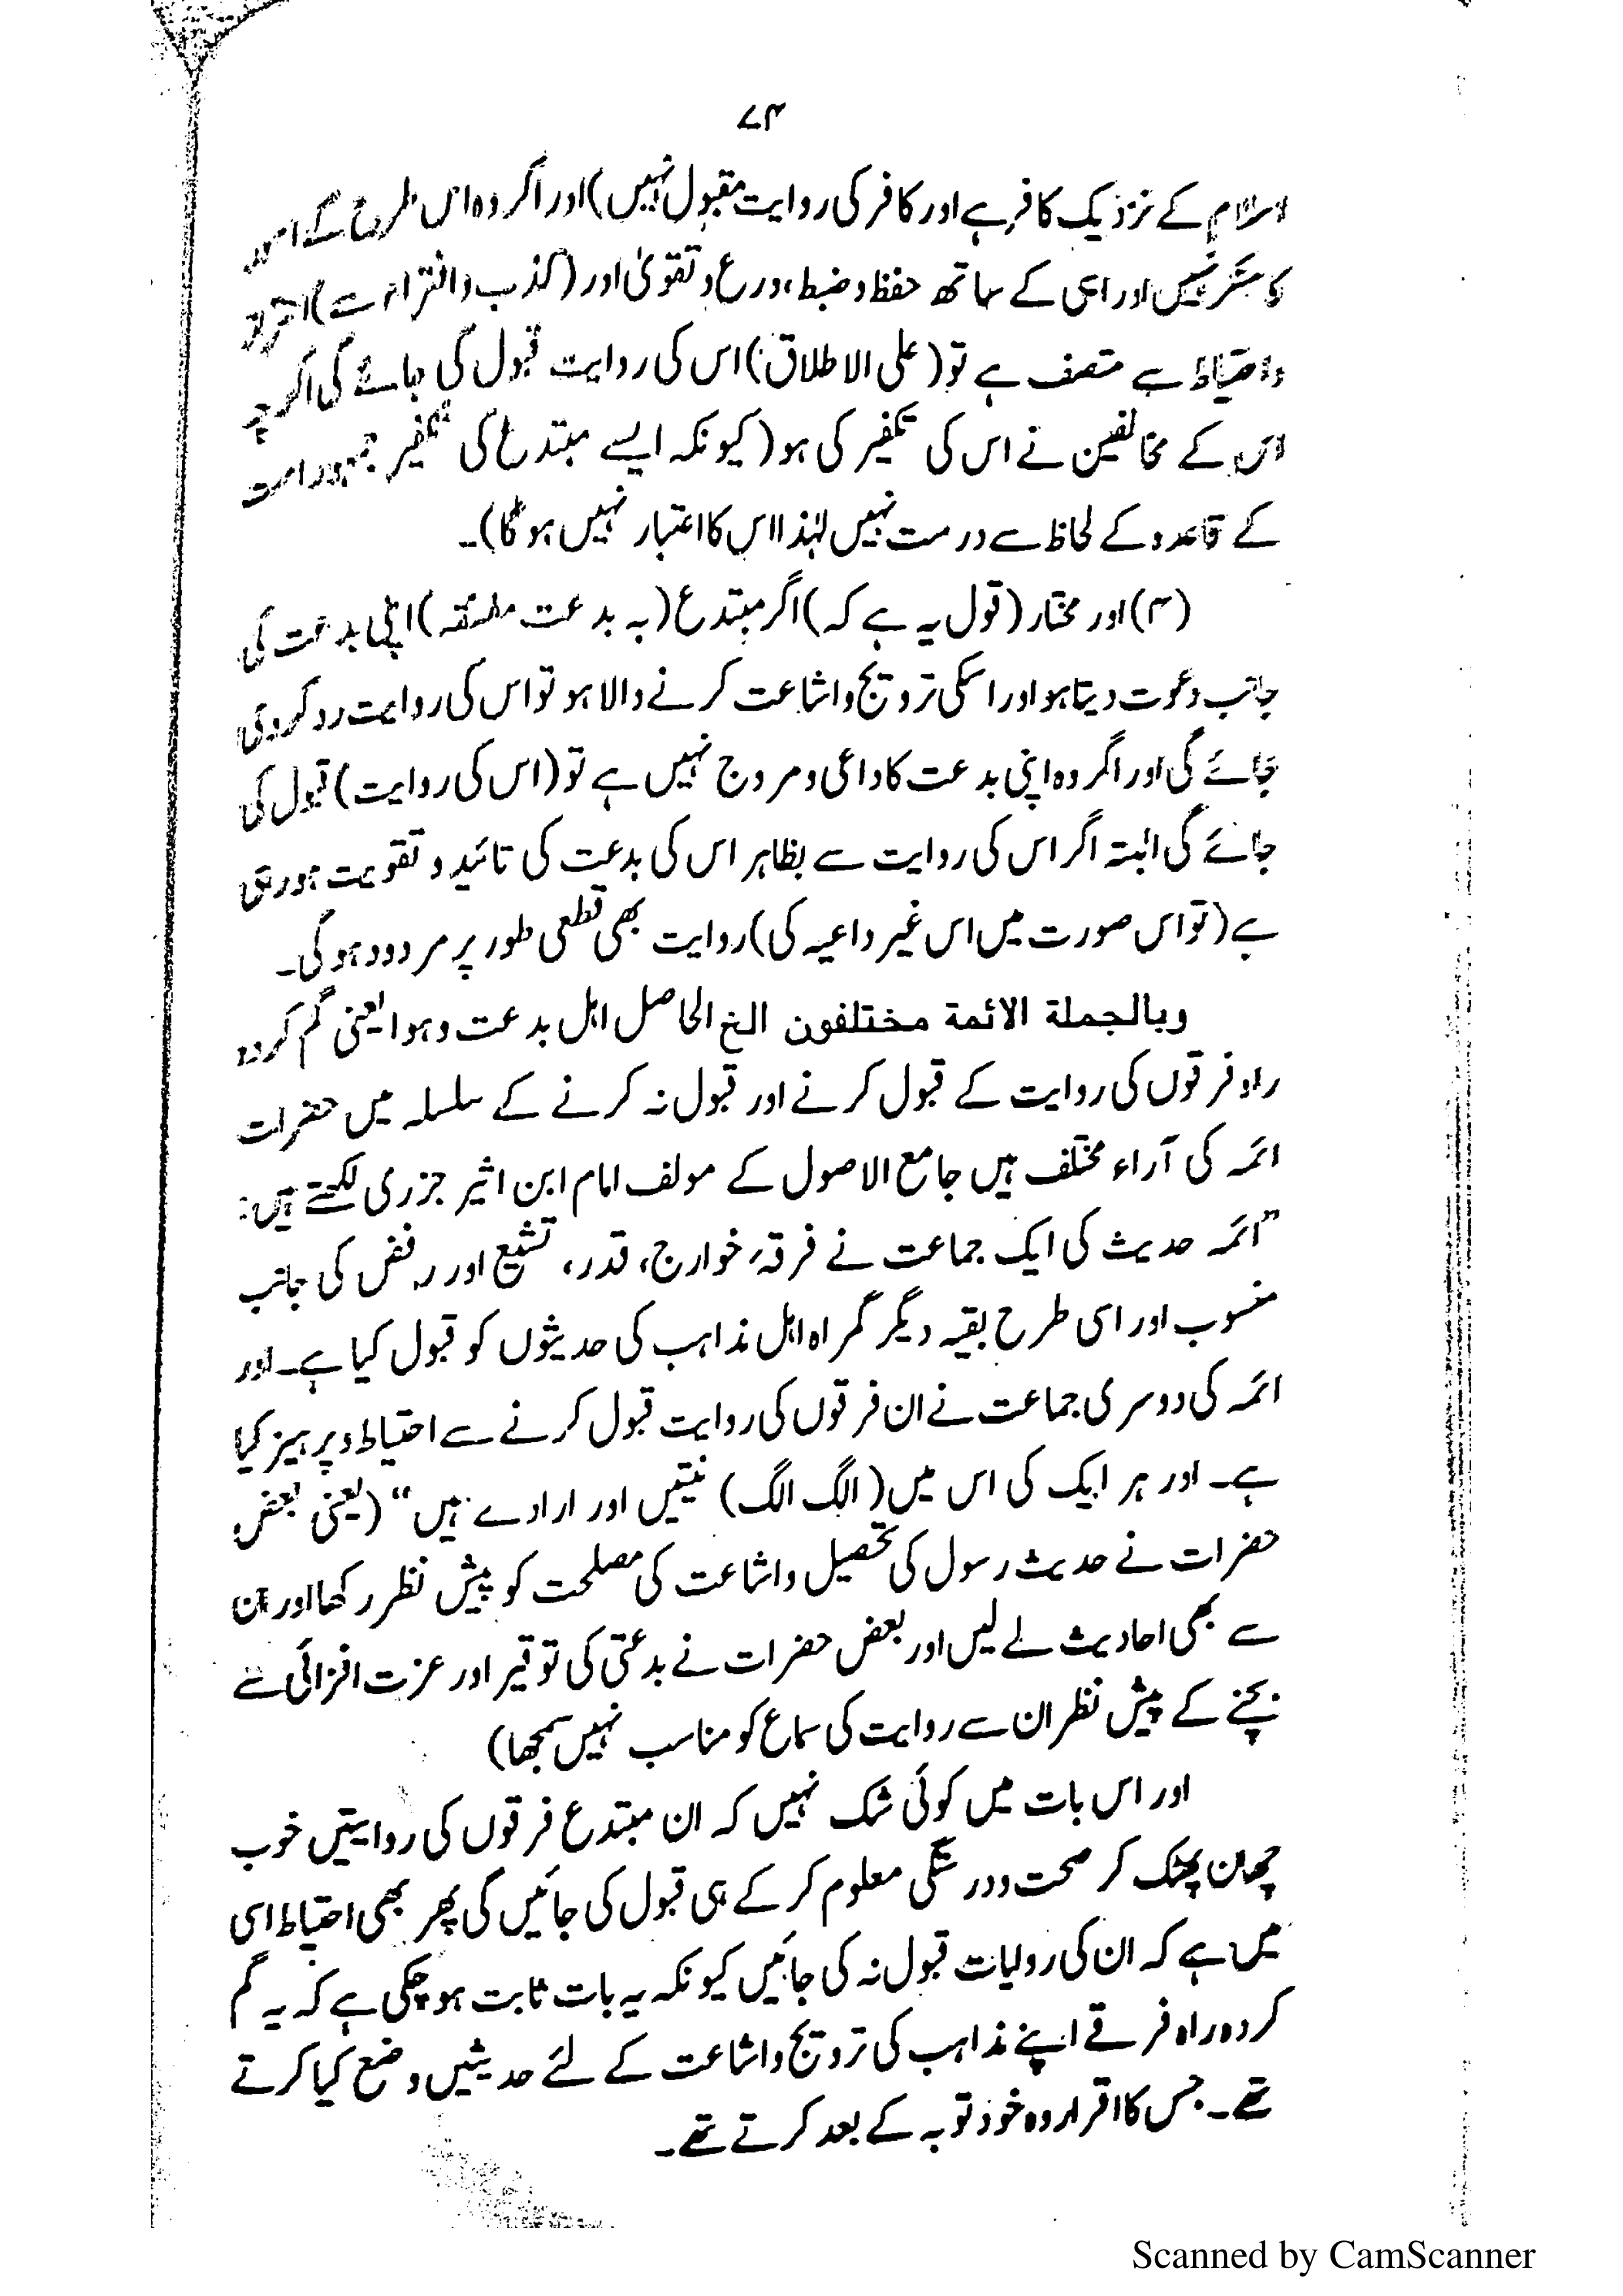 ۷۴
اسلام کے نزدیک کافر ہے اور کافر کی روایت مقبول نہیں) اور اگر وہ اس طرح کے امور
کا منکر نہیں اور اسی کے ساتھ حفظ و ضبط، ورع و تقویٰ اور (کذب و افتراء سے) احتراز
و احتیاط سے متصف ہے تو (علی الاطلاق) اس کی روایت قبول کی جائے گی اگرچہ
اس کے مخالفین نے اس کی تکفیر کی ہو (کیونکہ ایسے مبتدع کی تکفیر جمہور امت
کے قاعدہ کے لحاظ سے درست نہیں لہٰذا اس کا اعتبار نہیں ہوگا)۔
(۴) اور مختار (قول یہ ہے کہ) اگر مبتدع (بہ بدعت مفسقہ) اپنی بدعت کی
جانب دعوت دیتا ہو اور اسکی ترویج واشاعت کرنے والا ہو تو اس کی روایت رد کردی
جائے گی اور اگر وہ اپنی بدعت کا داعی و مروج نہیں ہے تو (اس کی روایت) قبول کی
جائے گی البتہ اگر اس کی روایت سے بظاہر اس کی بدعت کی تائید و تقویت ہورہی
ہے (تو اس صورت میں اس غیر داعیہ کی) روایت بھی قطعی طور پر مردود ہوگی۔
وبالجملة الائمة مختلفون الخ الحاصل اہل بدعت وہوا یعنی گم کردہ
راہ فرقوں کی روایت کے قبول کرنے اور قبول نہ کرنے کے سلسلہ میں حضرات
ائمہ کی آراء مختلف ہیں جامع الاصول کے مولف امام ابن اثیر جزری لکھتے ہیں:
”ائمہ حدیث کی ایک جماعت نے فرقۂ خوارج، قدر، تشیع اور رفض کی جانب
منسوب اور اسی طرح بقیہ دیگر گمراہ اہل مذاہب کی حدیثوں کو قبول کیا ہے۔ اور
ائمہ کی دوسری جماعت نے ان فرقوں کی روایت قبول کرنے سے احتیاط و پرہیز کیا
ہے۔ اور ہر ایک کی اس میں (الگ الگ) نیتیں اور ارادے ہیں“ (یعنی بعض
حضرات نے حدیث رسول کی تحصیل واشاعت کی مصلحت کو پیش نظر رکھا اور ان
سے بھی احادیث لے لیں اور بعض حضرات نے بدعتی کی توقیر اور عزت افزائی سے
بچنے کے پیش نظر ان سے روایت کی سماع کو مناسب نہیں سمجھا)
اور اس بات میں کوئی شک نہیں کہ ان مبتدع فرقوں کی روایتیں خوب
چھان پھٹک کر صحت ودرستگی معلوم کرکے ہی قبول کی جائیں گی پھر بھی احتیاط اسی
میں ہے کہ ان کی روایات قبول نہ کی جائیں کیونکہ یہ بات ثابت ہوچکی ہے کہ یہ گم
کردہ راہ فرقے اپنے مذاہب کی ترویج واشاعت کے لئے حدیثیں وضع کیا کرتے
تھے۔ جس کا اقرار وہ خود توبہ کے بعد کرتے تھے۔
Scanned by CamScanner